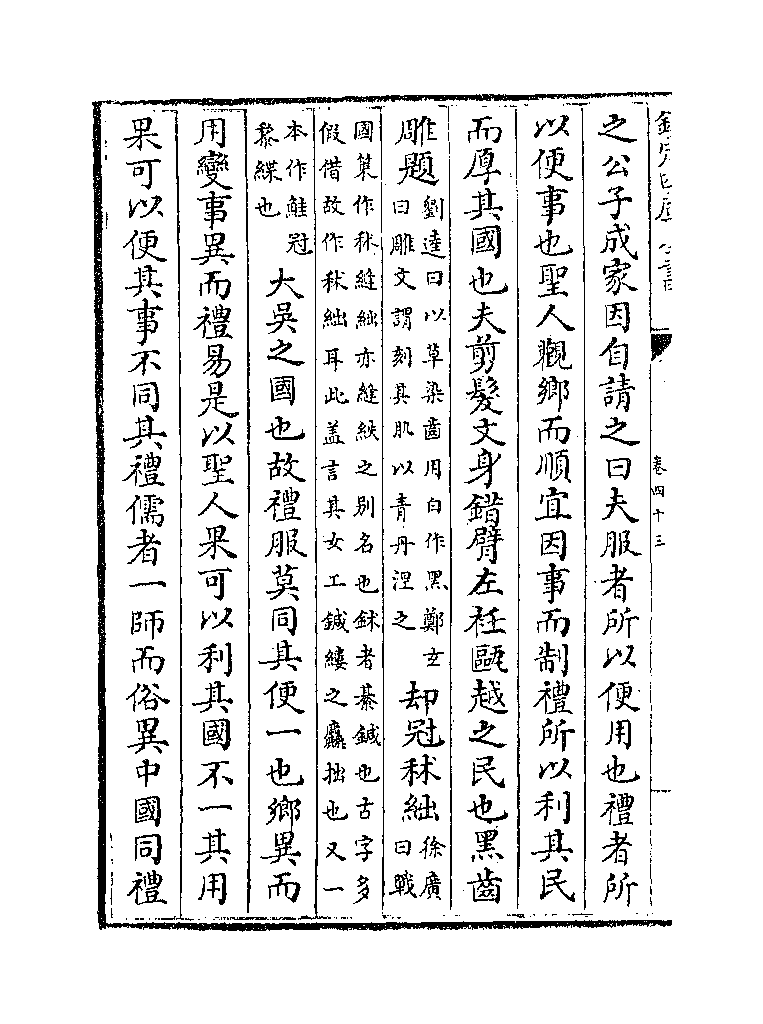 欽定四庫全書
卷四十三
之公子成家因自請之曰夫服者所以便用也禮者所
以便事也聖人觀鄉而順宜因事而制禮所以利其民
而厚其國也夫剪髮文身錯臂左衽甌越之民也黑齒
雕題劉逵曰以草染齒用白作黑鄭玄曰雕文謂刻其肌以青丹涅之却冠秫絀徐廣曰戰
國策作秫縫絀亦縫紩之别名也鉥者綦鍼也古字多
假借故作秫絀耳此盖言其女工鍼縷之麤拙也又一
本作鮭冠黎緤也大吳之國也故禮服莫同其便一也鄉異而
用變事異而禮易是以聖人果可以利其國不一其用
果可以便其事不同其禮儒者一師而俗異中國同禮